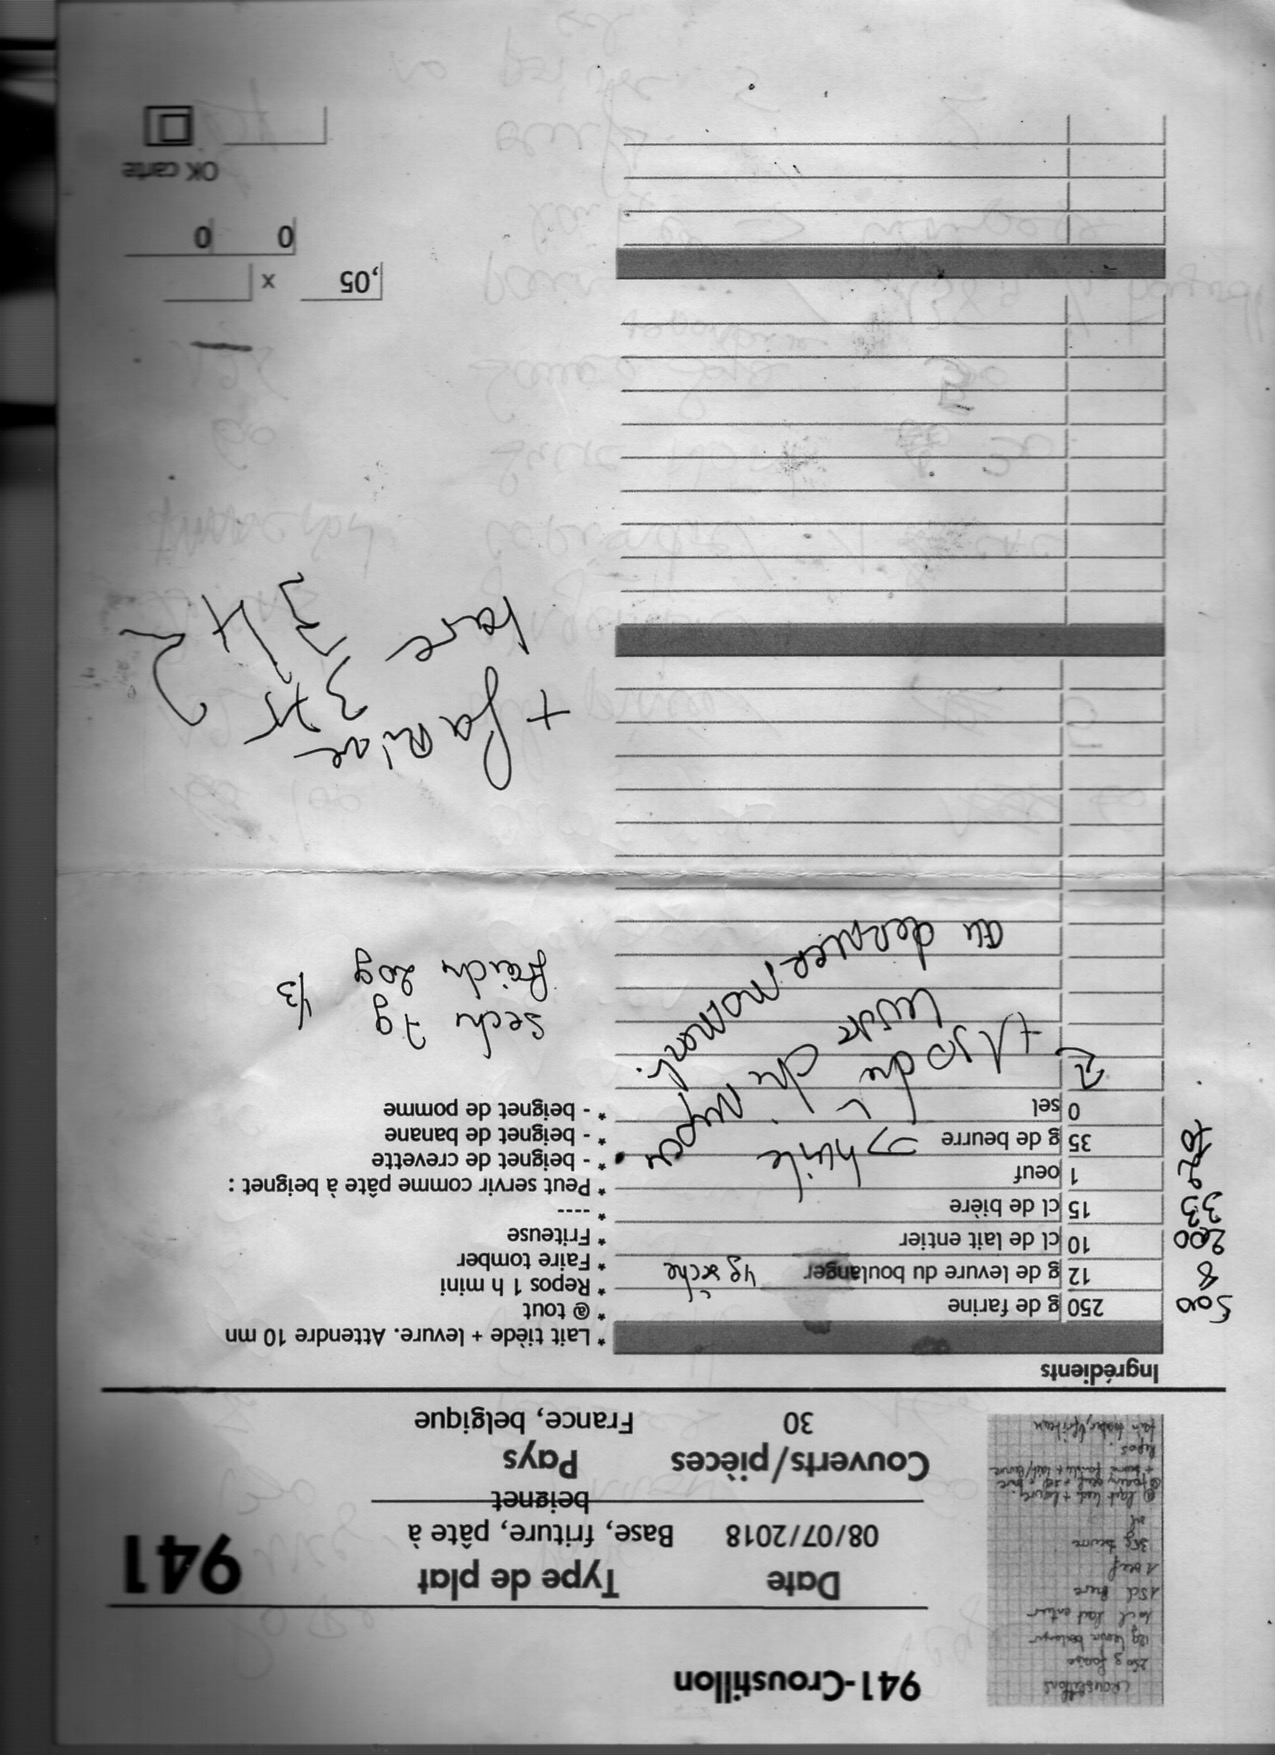 941-Croustillon
Date
08/07/2018
Type de plat
Base, friture, pâte à
beignet
941
Couverts/pièces
30
Pays
France, belgique
Ingrédients
500 250 g de farine
8 12 g de levure du boulanger 4g sèche
200 10 cl de lait entier
33 15 cl de bière
2 1 oeuf
70 35 g de beurre => huile
0 sel
* Lait tiède + levure. Attendre 10 mn
* @ tout
* Repos 1 h mini
* Faire tomber
* Friteuse
* ----
* Peut servir comme pâte à beignet :
* - beignet de crevette
* - beignet de banane
* - beignet de pomme
au dernier moment.
sechi 7g
fraichi 20g
1/3
+ farine
375
342
,05 x
0 0
OK carte
croustillons
250 g farine
12g levure boulanger
10cl lait entier
15cl biere
1 oeuf
35g beurre
sel
Repos